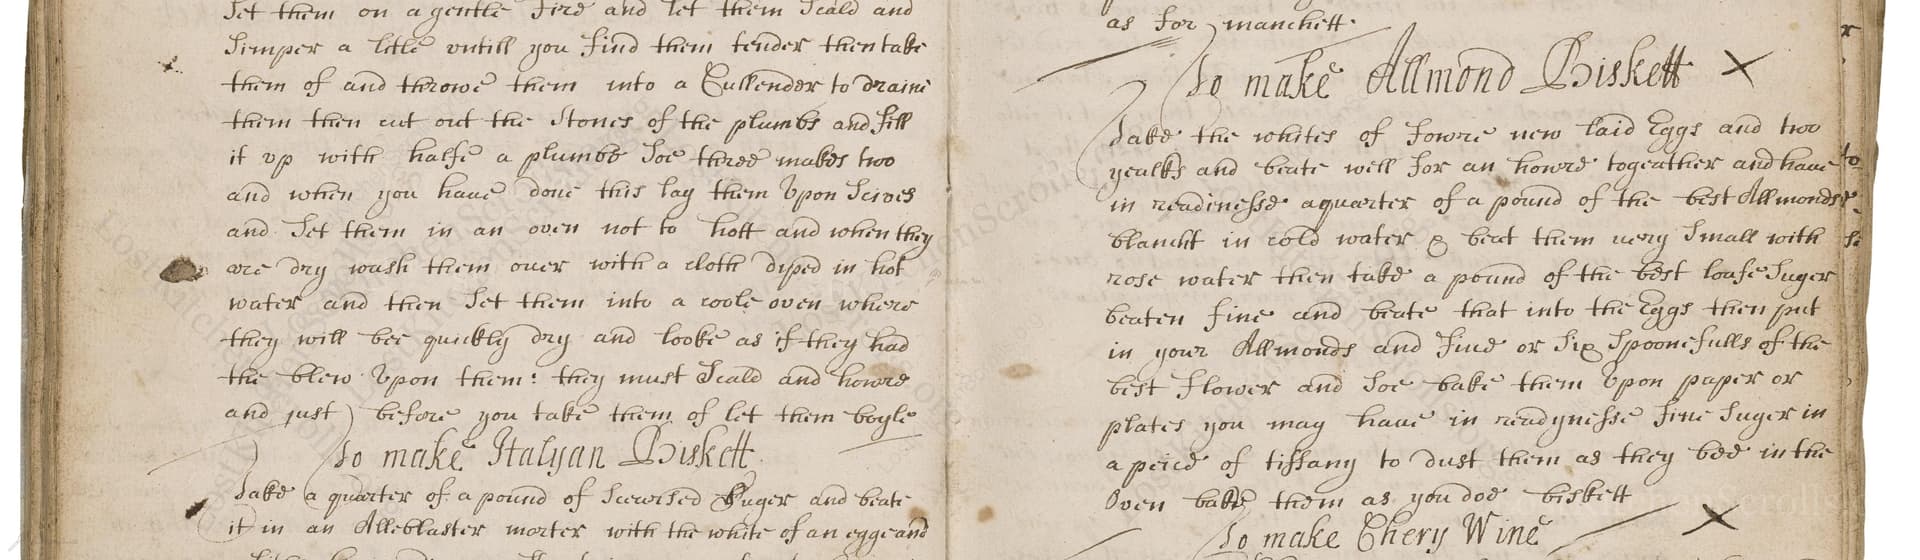 Set them on a gentle Fire and let them Scald and
Simper a litle untill you find them tender then take
them of and throwe them into a Cullender to draine
them then cut out the Stones of the plumbs and fill
it up with halfe a plumbe Soe three makes two
and when you have done this lay them Upon Scives
and Set them in an oven not to hott and when they
are dry wash them over with a cloth diped in hot
water and then Set them into a coole oven where
they will bee quickly dry and looke as if they had
the blew Upon them: they must Scald and howre
and just before you take them of let them boyle
To make Italyan Biskett
Take a quarter of a pound of Scewrsed Suger and beate
it in an Alleblaster morter with the white of an egge and
as for manchett
To make Allmond Biskett X
Take the whites of Fowre new laid Eggs and two
yealks and beate well for an howre togeather and have
in readinesse a quarter of a pound of the best Allmonds
blancht in cold water & beat them very Small with
rose water then take a pound of the best loafe Suger
beaten fine and beate that into the Eggs then put
in your Allmonds and Five or Six Spoonefulls of the
best flower and Soe bake them Upon paper or
plates you may have in readynesse Fine Suger in
a peice of tiffany to dust them as they bee in the
Oven bake them as you doe biskett
To make Chery Wine X